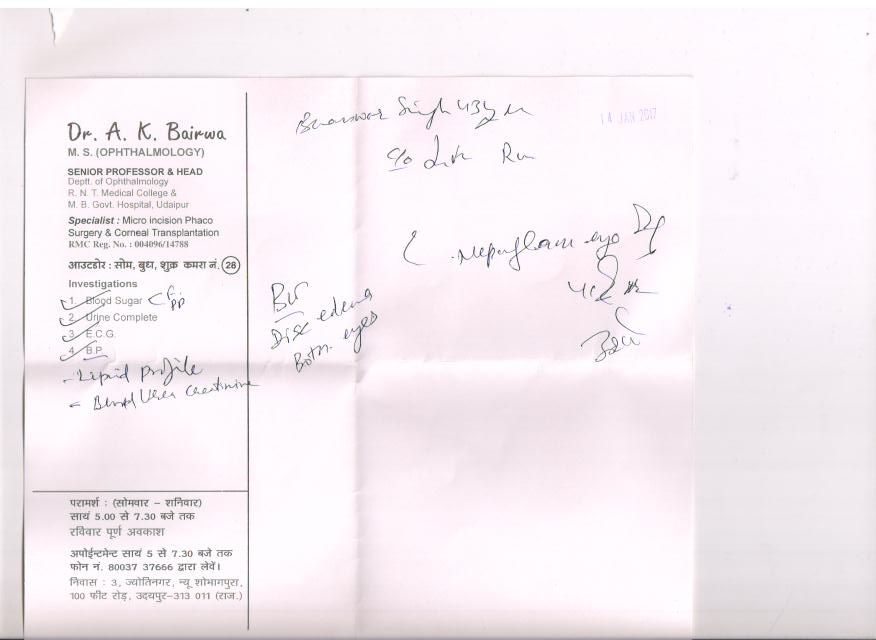 Dr. A. K. Bairwa
M. S. (OPHTHALMOLOGY)
SENIOR PROFESSOR & HEAD
Deptt. of Ophthalmology
R. N. T. Medical College &
M. B. Govt. Hospital, Udaipur
Specialist : Micro incision Phaco
Surgery & Corneal Transplantation
RMC Reg. No. : 004096/14788
आउटडोर : सोम, बुध, शुक्र कमरा नं. 28
Investigations
1. Blood Sugar F PP
2. Urine Complete
3. E.C.G.
4. B.P.
- Lipid profile
- Blood Urea Creatinine
परामर्श : (सोमवार – शनिवार)
सायं 5.00 से 7.30 बजे तक
रविवार पूर्ण अवकाश
अपोईन्टमेन्ट सायं 5 से 7.30 बजे तक
फोन नं. 80037 37666 द्वारा लेवें।
निवास : 3, ज्योतिनगर, न्यू शोभागपुरा,
100 फीट रोड़, उदयपुर–313 011 (राज.)
Singh 43y
14 JAN 2017
c/o
eye
Disc edema
Both eyes